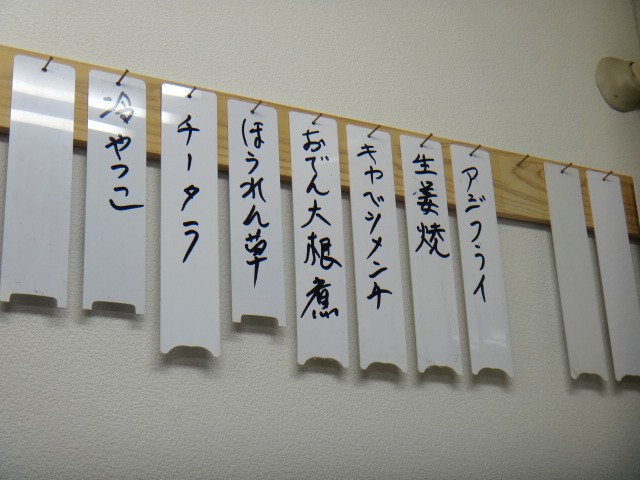 アジフライ
生姜焼
キャベツメンチ
おでん大根煮
ほうれん草
チータラ
冷やっこ